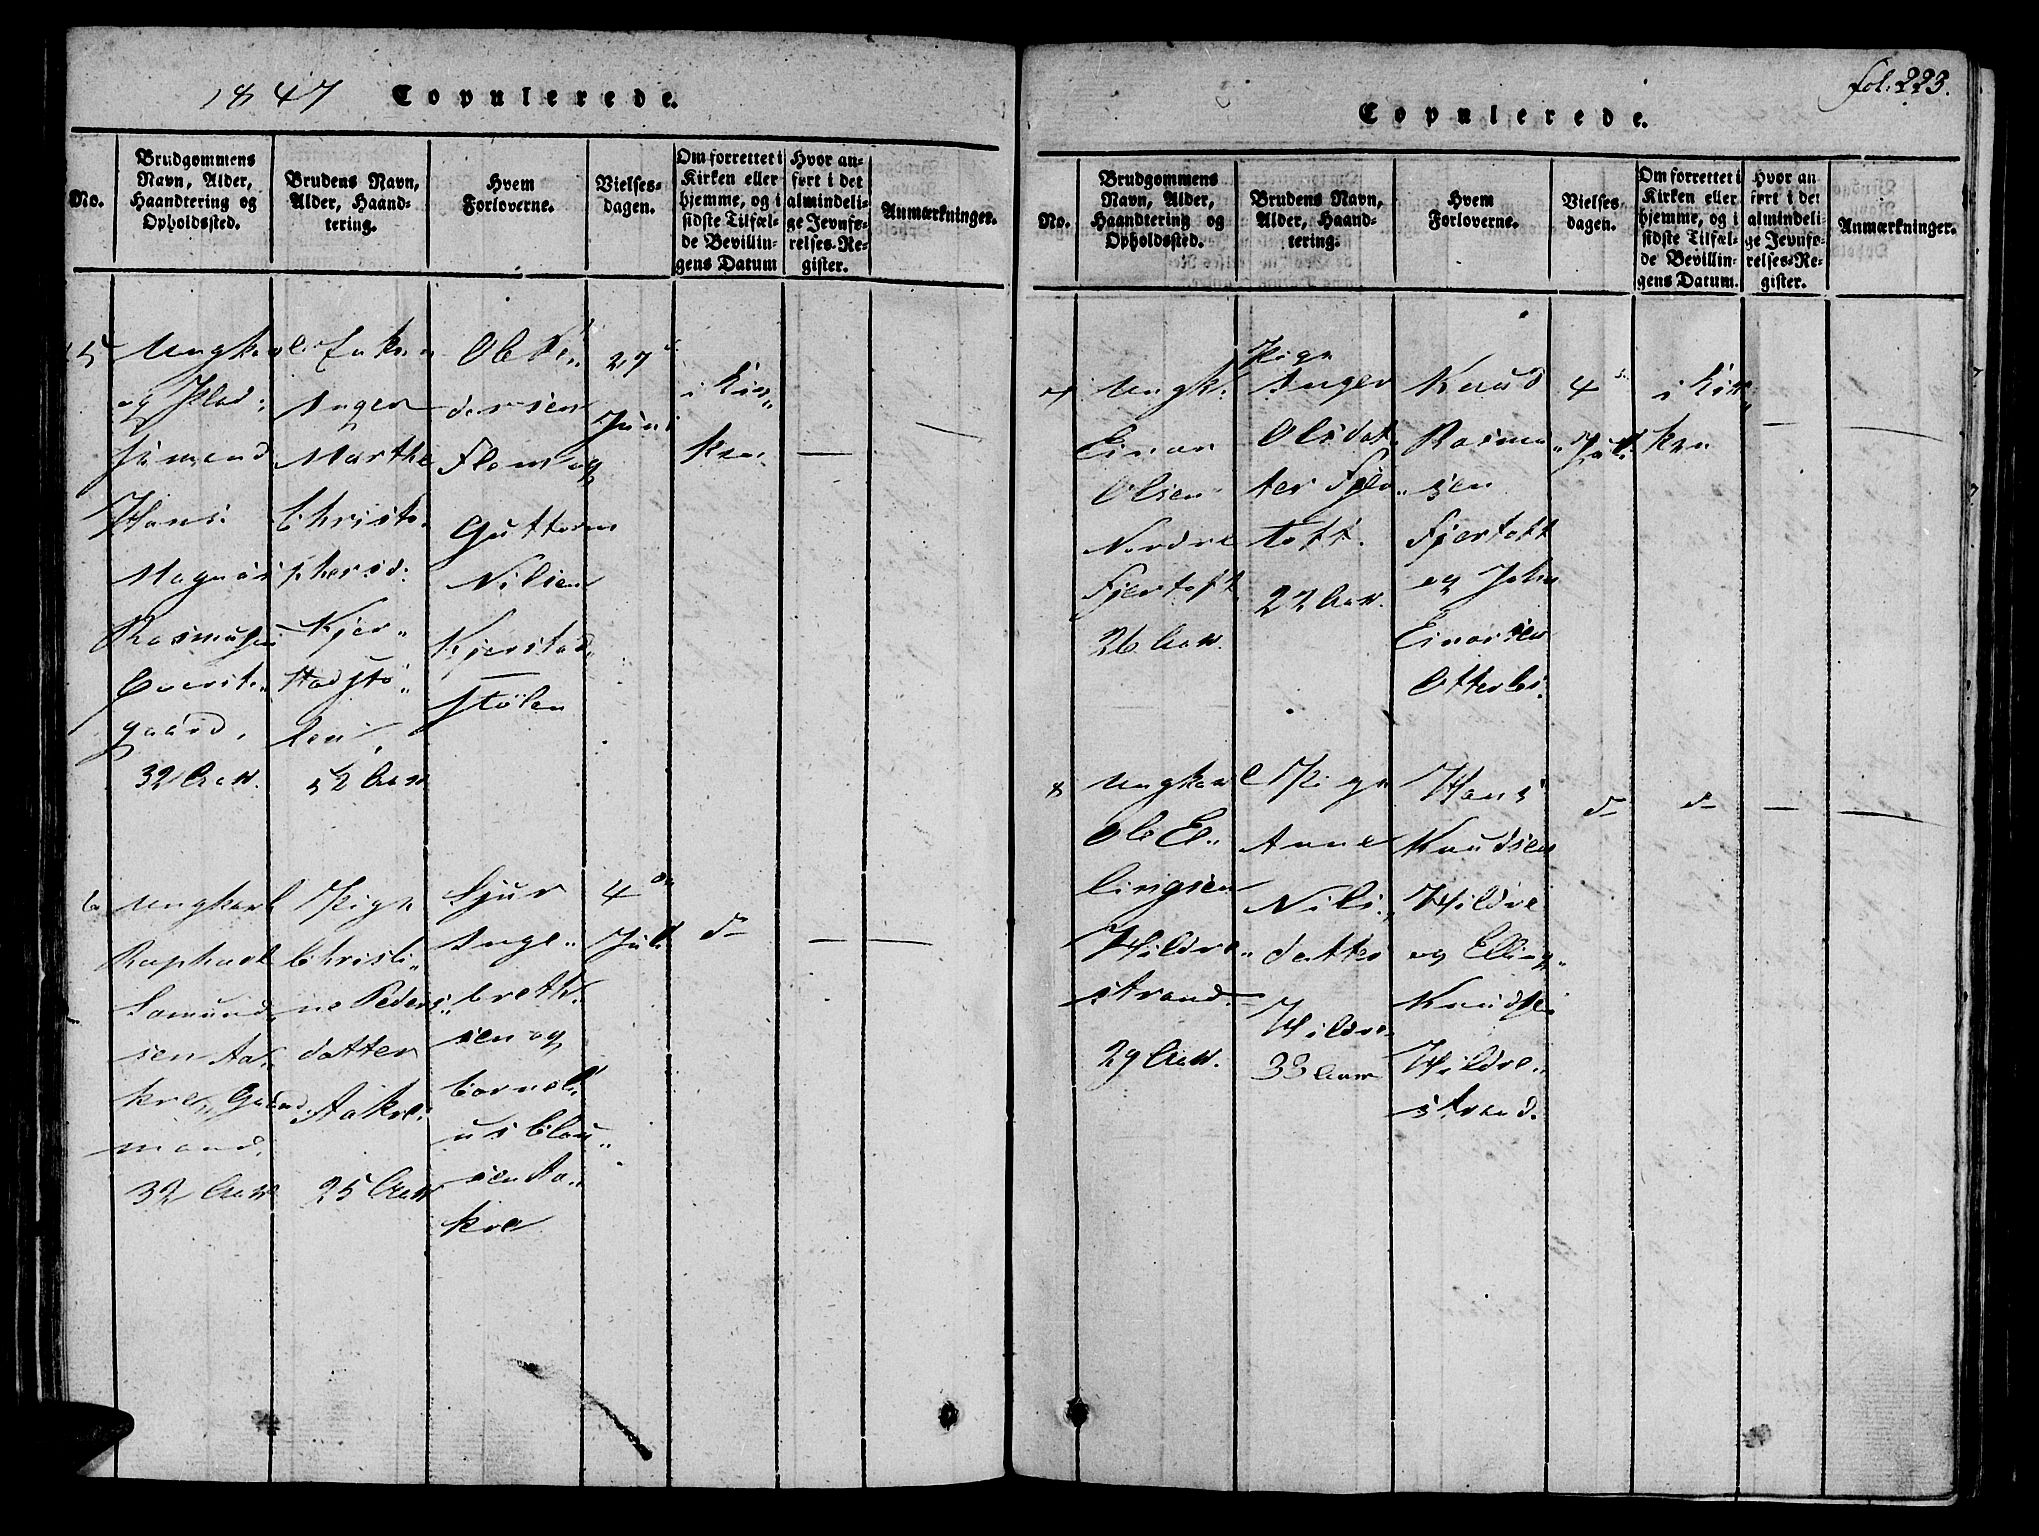 1847 Copulerede.
No.
Brudgommens
Navn, Alder,
Haandtering og
Opholdssted.
Brudens Navn,
Alder, Haand-
tering.
Hvem
Forloverne.
Vielses-
dagen.
Om forrettet i
Kirken eller
hjemme, og i
sidste Tilfæl-
de Bevillin-
gens Datum
Hvor an-
ført i det
almindeli-
ge Jevnfø-
relses-Re-
gister.
Anmærkninger.
5
Ungkarl
og
Hans
Magnus
Rasmussen
gaard,
32 Aar.
Enken
Inger
Marthe
Christo-
phersd:
Kjer-
stadstø-
len,
52 Aar
Ole Pe-
dersen
Flem og
Guttorm
Nilsen
Kjerstad-
stølen
27
Juni
i Kir-
ken.
—
—
6
Ungkarl
Raphael
Samund-
sen Aa-
kre, Gaard-
mand.
32 Aar
Pige
Christi-
ne Peders-
datter
Aakre.
25 Aar
Sjur
Inge-
breth-
sen og
Corneli-
us Clau-
sen Aa-
kre
4
Juli
do
—
—
fol. 223.
Copulerede.
No.
Brudgommens
Navn, Alder,
Haandtering og
Opholdssted.
Brudens Navn,
Alder, Haand-
tering.
Hvem
Forloverne.
Vielses
dagen.
Om forrettet i
Kirken eller
hjemme, og i
sidste Tilfæl-
de Bevillin-
gens Datum.
Hvor an
ført i det
almindeli-
ge Jevnfø-
relses-Re-
gister.
Anmærkninger.
7
Ungk.
Einar
Olsen
Nordre
Fjertoft
26 Aar.
Pige
Inger
Olsdat-
ter Fjer-
toft.
22 Aar.
Knud
Rasmu-
sen
Fjertoft
og John
Einarsen
Otterlei.
4
Juli
i Kir-
ken
—
—
8
Ungkarl
Ole El-
lingsen
Hildre-
strand.
29 Aar.
Pige
Anne
Nils-
datter
Hildre
33 Aar
Hans
Knudsen
Hildre
og Elling
Knudsen
Hildre-
strand.
do
do
—
—